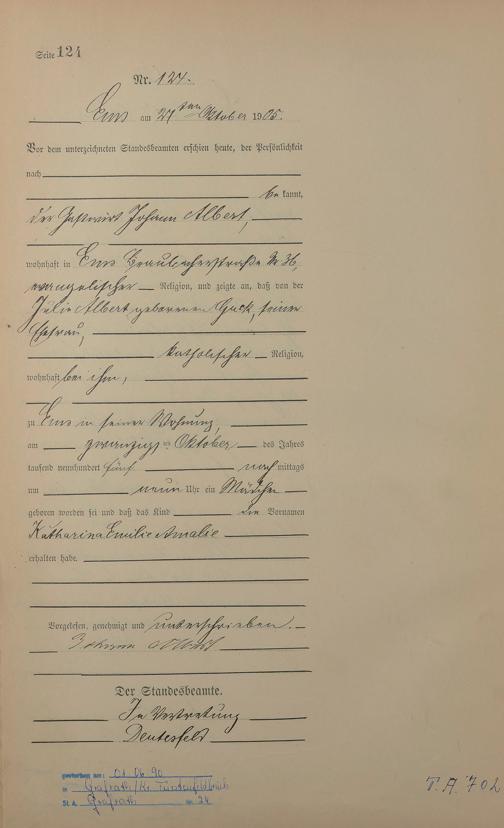 Seite 124
Nr. 124.
Ems am 21ten Oktober 1905.
Vor dem unterzeichneten Standesbeamten erschien heute, der Persönlichkeit
nach
be kannt,
der Gastwirt Johann Albert,
wohnhaft in Ems Braubacherstraße № 36,
evangelischer Religion, und zeigte an, daß von der
Julie Albert geborenen Huck, seiner
Ehefrau,
katholischer Religion,
wohnhaft bei ihm,
zu Ems in seiner Wohnung,
am zwanzigsten Oktober des Jahres
tausend neunhundert fünf nach mittags
um neun Uhr ein Mädchen
geboren worden sei und daß das Kind die Vornamen
Katharina Emilie Amalie
erhalten habe.
Vorgelesen, genehmigt und unterschrieben.
Johann Albert
Der Standesbeamte.
In Vertretung
gestorben am: 01.06.90
in Grafrath/Kr. Fürstenfeldbruck
St. A. Grafrath Nr. 24
T.A. 702